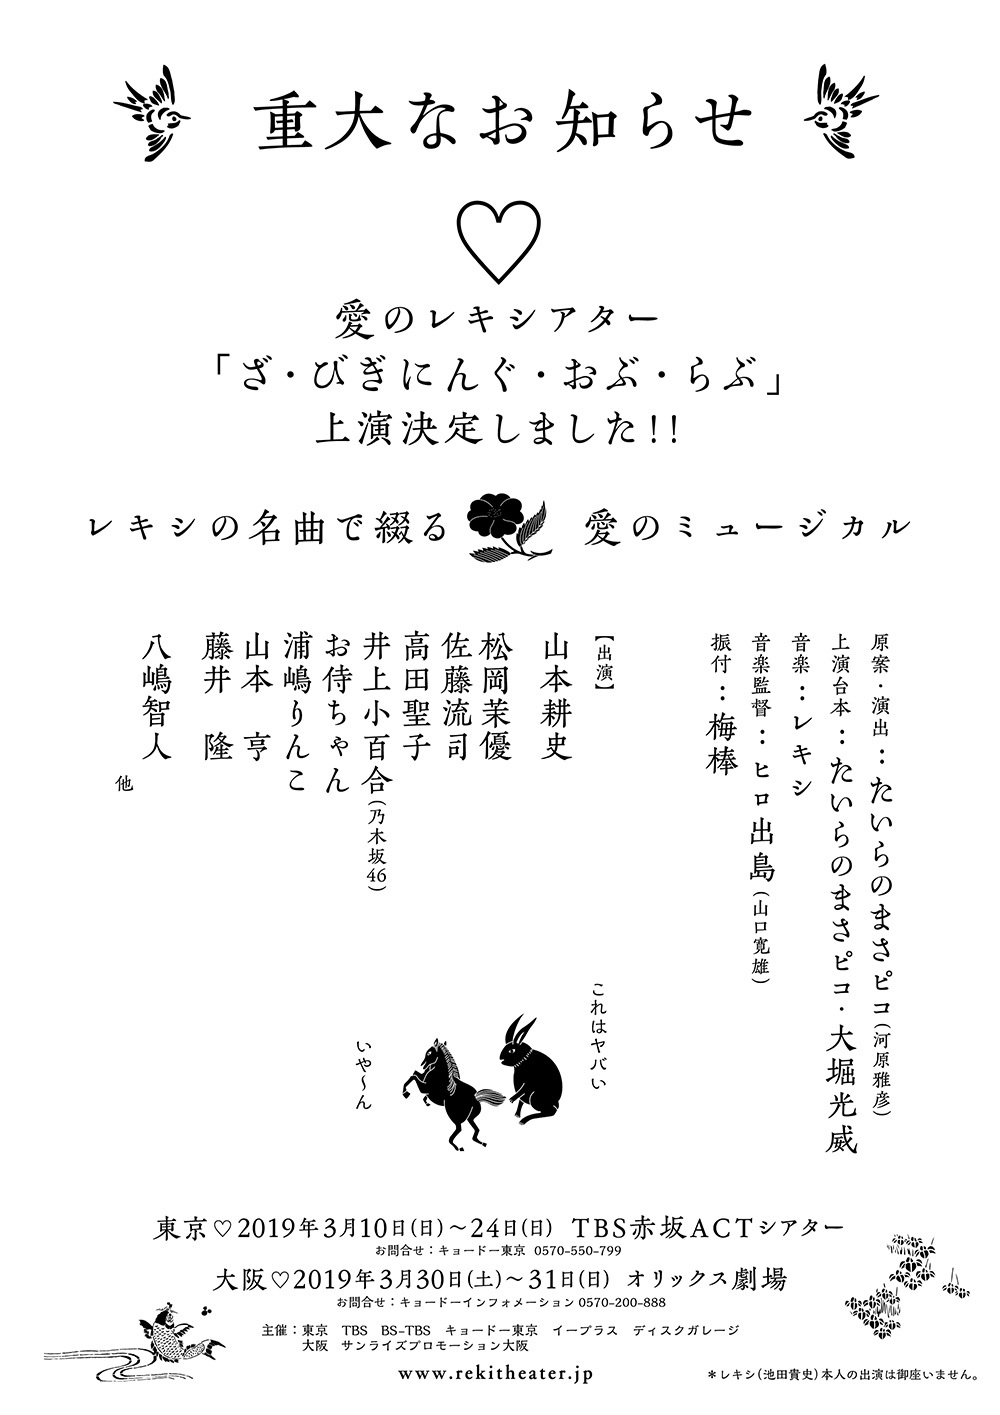 重大なお知らせ
愛のレキシアター
「ざ・びぎにんぐ・おぶ・らぶ」
上演決定しました!!
レキシの名曲で綴る 愛のミュージカル
原案・演出：たいらのまさピコ(河原雅彦)
上演台本：たいらのまさピコ・大堀光威
音楽：レキシ
音楽監督：ヒロ出島(山口寛雄)
振付：梅棒
【出演】
山本耕史
松岡茉優
佐藤流司
高田聖子
井上小百合(乃木坂46)
お侍ちゃん
浦嶋りんこ
山本 亨
藤井 隆
八嶋智人
他
これはヤバい
いや〜ん
東京♡2019年3月10日(日)〜24日(日) TBS赤坂ACTシアター
お問合せ：キョードー東京 0570-550-799
大阪♡2019年3月30日(土)〜31日(日) オリックス劇場
お問合せ：キョードーインフォメーション 0570-200-888
主催：東京 TBS BS-TBS キョードー東京 イープラス ディスクガレージ
大阪 サンライズプロモーション大阪
www.rekitheater.jp
＊レキシ(池田貴史)本人の出演は御座いません。